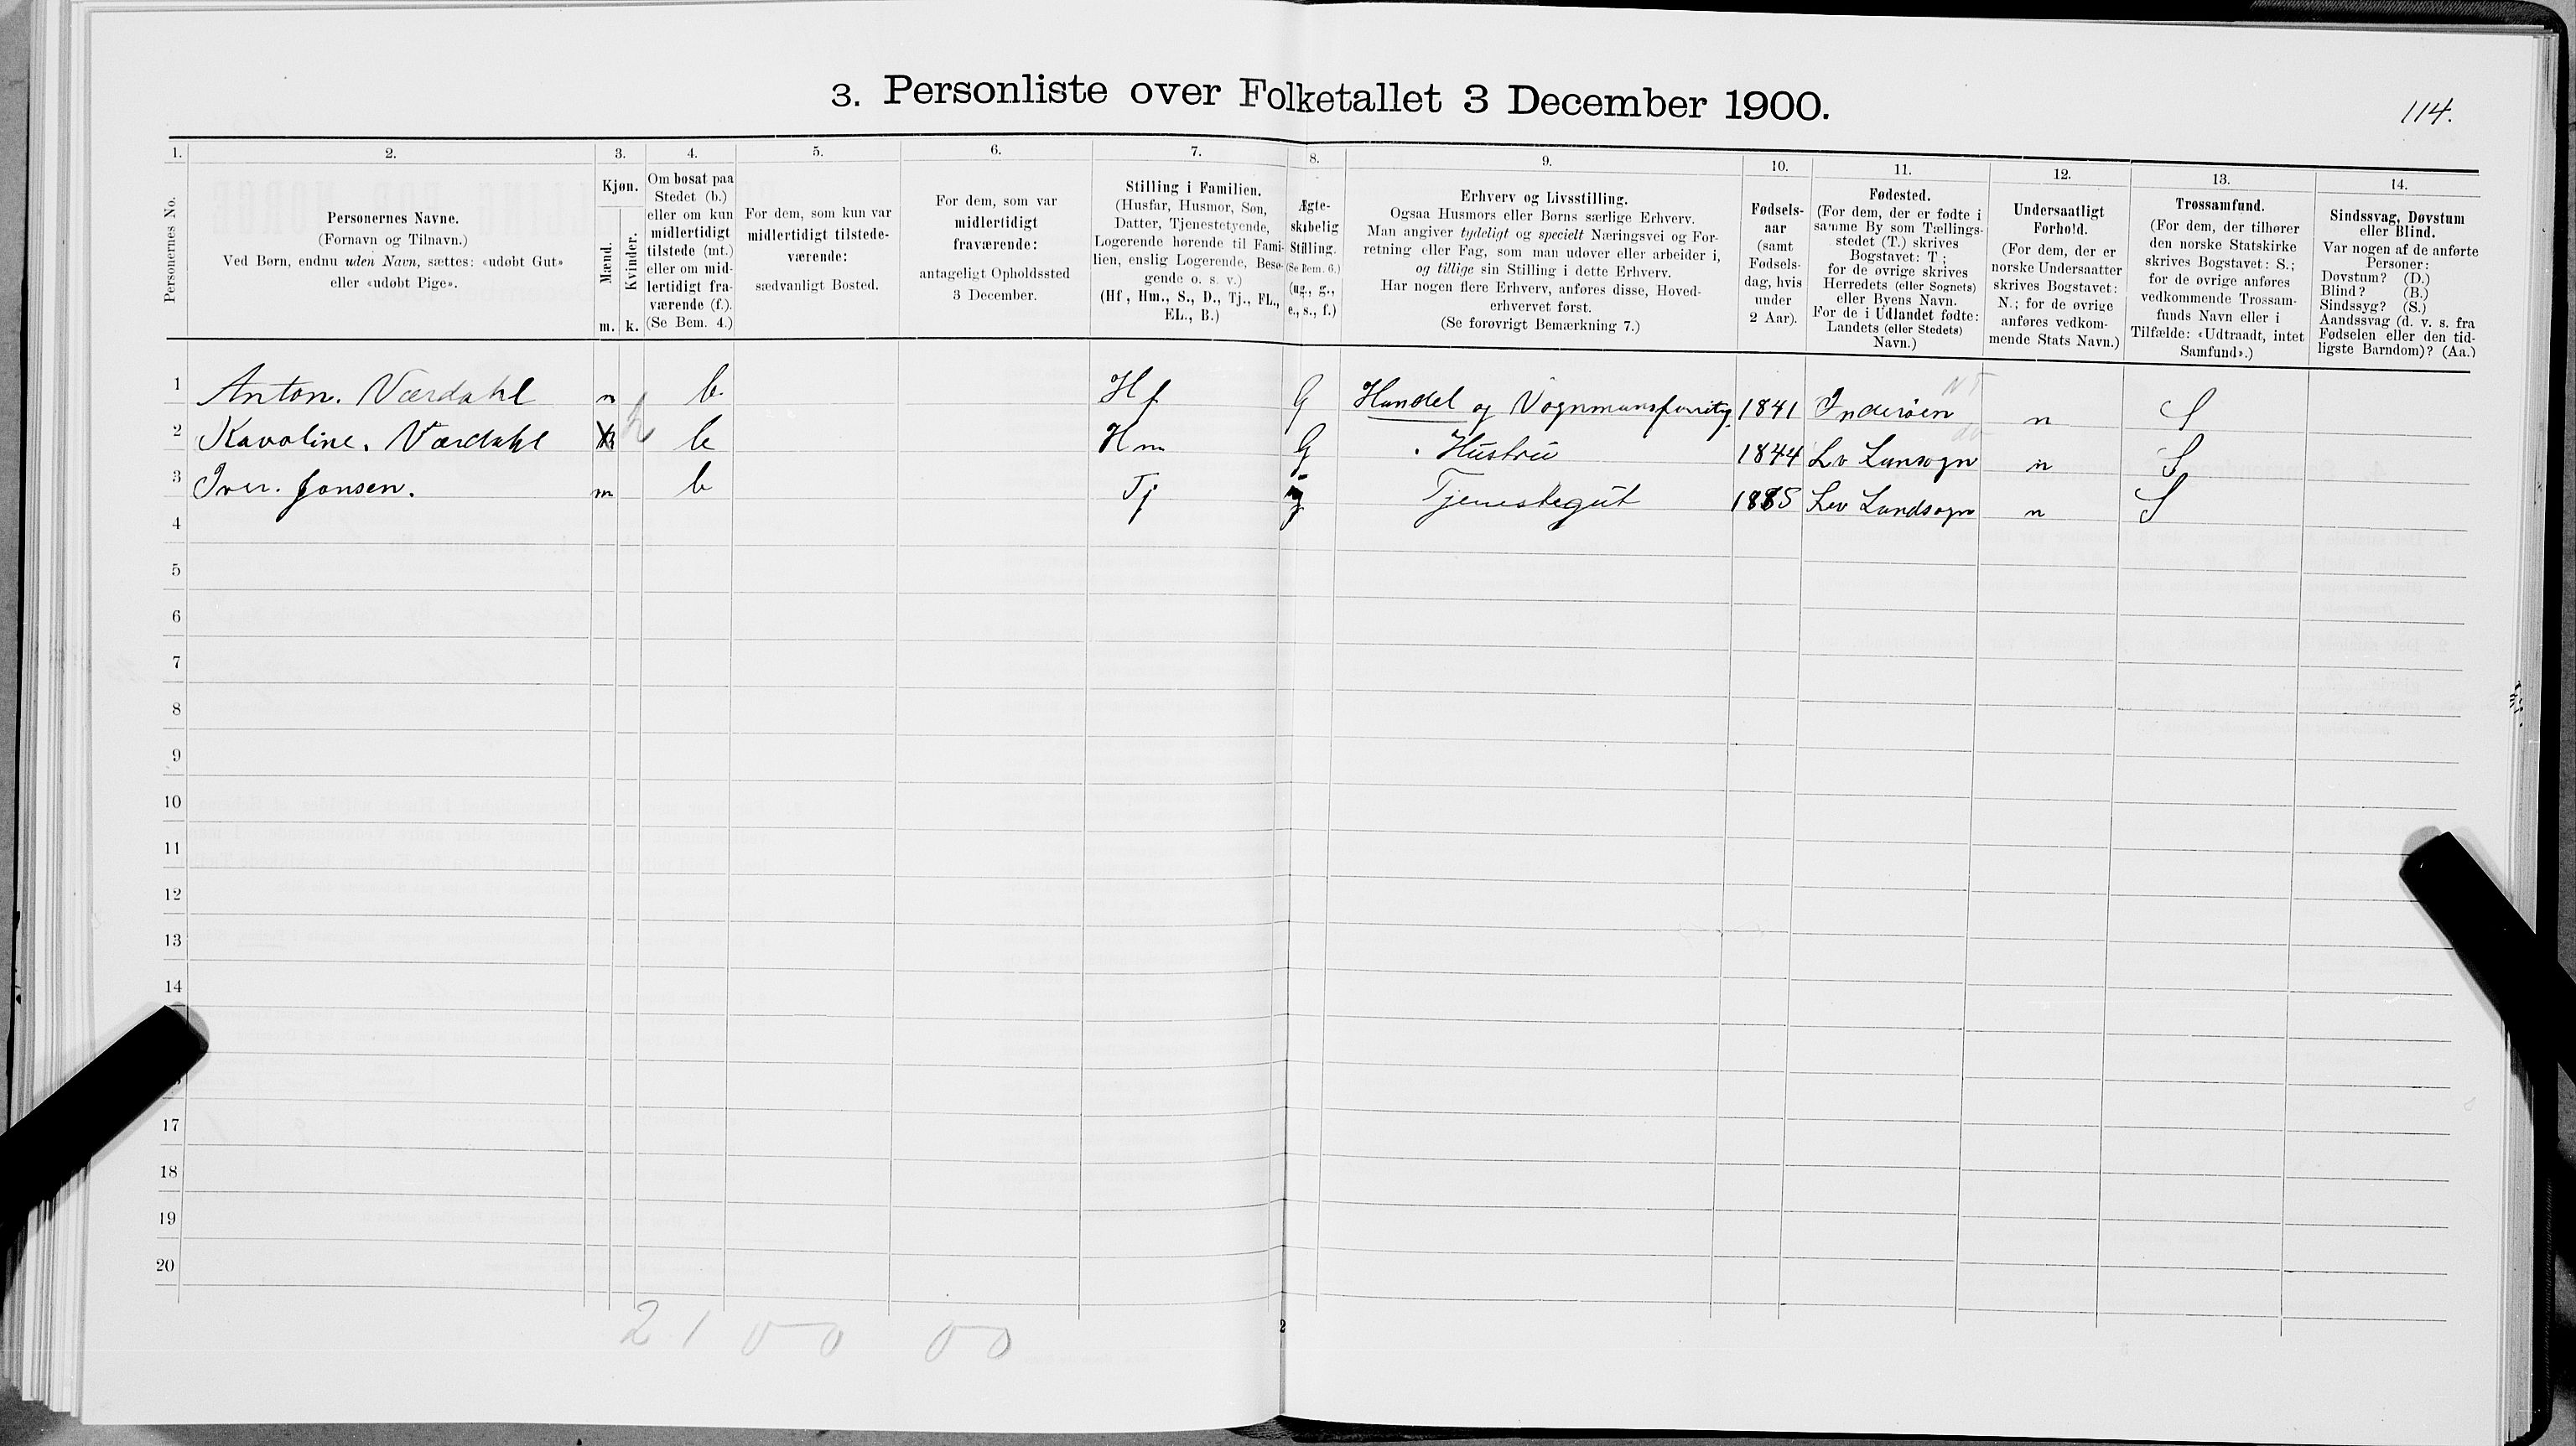 3. Personliste over Folketallet 3 December 1900.
114.
1. 2. 3. 4. 5. 6. 7. 8. 9. 10. 11. 12. 13. 14.
Personernes No.
Personernes Navne.
(Fornavn og Tilnavn.)
Ved Børn, endnu uden Navn, sættes: «udøbt Gut»
eller «udøbt Pige».
Kjøn.
Mænd.
Kvinder.
m. k.
Om bosat paa
Stedet (b.)
eller om kun
midlertidigt
tilstede (mt.)
eller om mid-
lertidigt fra-
værende (f.).
(Se Bem. 4.)
For dem, som kun var
midlertidigt tilstede-
værende:
sædvanligt Bosted.
For dem, som var
midlertidigt
fraværende:
antageligt Opholdssted
3 December.
Stilling i Familien.
(Husfar, Husmor, Søn,
Datter, Tjenestetyende,
Logerende hørende til Fami-
lien, enslig Logerende, Besø-
gende o. s. v.)
(Hf, Hm., S., D., Tj., FL.,
EL., B.)
Ægte-
skabelig
Stilling.
(Se Bem. 6.)
(ug., g.,
e., s., f.)
Erhverv og Livsstilling.
Ogsaa Husmors eller Børns særlige Erhverv.
Man angiver tydeligt og specielt Næringsvei og For-
retning eller Fag, som man udøver eller arbeider i,
og tillige sin Stilling i dette Erhverv.
Har nogen flere Erhverv, anføres disse, Hoved-
erhvervet først.
(Se forøvrigt Bemærkning 7.)
Fødsels-
aar
(samt
Fødsels-
dag, hvis
under
2 Aar).
Fødested.
(For dem, der er fødte i
samme By som Tællings-
stedet (T.) skrives
Bogstavet: T;
for de øvrige skrives
Herredets (eller Sognets)
eller Byens Navn.
For de i Udlandet fødte:
Landets (eller Stedets)
Navn.)
Undersaatligt
Forhold.
(For dem, der er
norske Undersaatter
skrives Bogstavet:
N.; for de øvrige
anføres vedkom-
mende Stats Navn.)
Trossamfund.
(For dem, der tilhører
den norske Statskirke
skrives Bogstavet: S.;
for de øvrige anføres
vedkommende Trossam-
funds Navn eller i
Tilfælde: «Udtraadt, intet
Samfund».)
Sindssvag, Døvstum
eller Blind.
Var nogen af de anførte
Personer:
Døvstum? (D.)
Blind? (B.)
Sindssyg? (S.)
Aandssvag (d. v. s. fra
Fødselen eller den tid-
ligste Barndom)? (Aa.)
NT
1 Anton. Værdahl m b. Hf G Handel og Vognmansforretng. 1841 Inderøen n S
do
2 Karoline. Værdahl k b Hm G Hustru 1844 Lv Lansogn n S
3 Iver. Jonsen. m b Tj Tjenestegut 1885 Lev Landsogn n S
4
5
6
7
8
9
10
11
12
13
14
17
18
19
20
2 1 0 0 0 0
2